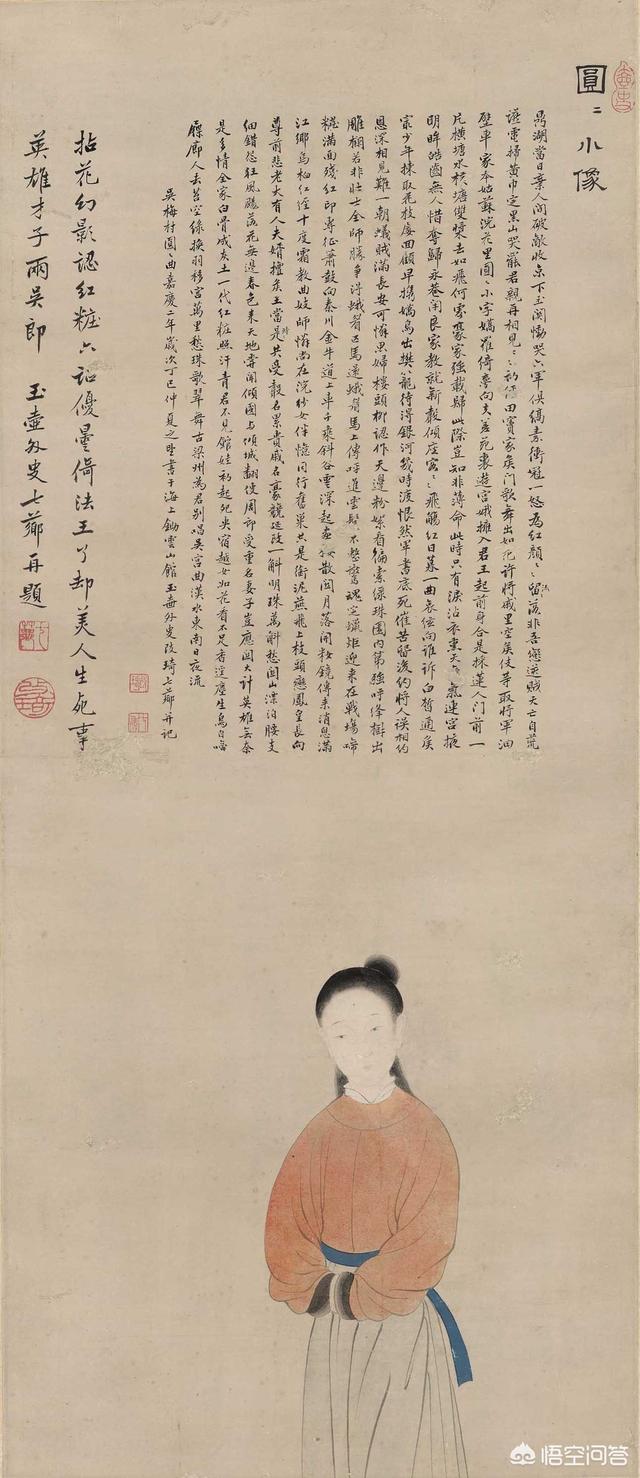 圓〻小像
鼎湖當日棄人間破敵收京下玉關慟哭六軍俱縞素衝冠一怒為紅顏〻〻流落非吾戀逆賊天亡自荒
讌電掃黃巾定黑山哭罷君親再相見〻〻初經田竇家矦門歌舞出如花許將戚里空矦伎等取將軍油
壁車家本姑蘇浣花里圓〻小字嬌羅綺夢向夫差苑裏遊宮娥擁入君王起前身合是採蓮人門前一
片橫塘水橫塘雙槳去如飛何處豪家強載歸此際豈知非薄命此時只有淚沾衣熏天意氣連宮掖
明眸皓齒無人惜奪歸永巷閉良家教就新聲傾座客〻〻飛觴紅日暮一曲哀絃向誰訴白皙通矦
最少年揀取花枝屢回顧早攜嬌鳥出樊籠待得銀河幾時渡恨煞軍書底死催苦留後約將人誤相約
恩深相見難一朝蟻賊滿長安可憐思婦樓頭柳認作天邊粉絮看徧索綠珠圍內第強呼絳樹出
雕欄若非壯士全師勝爭得蛾眉匹馬還蛾眉馬上傳呼進雲鬟不整驚魂定蠟炬迎來在戰場啼
糚滿面殘紅印專征簫鼓向秦川金牛道上車千乘斜谷雲深起畫樓散關月落開妝鏡傳來消息滿
江鄉烏桕紅經十度霜教曲妓師憐尚在浣紗女伴憶同行舊巢共是銜泥燕飛上枝頭變鳳皇長向
尊前悲老大有人夫婿擅矦王當時是共受聲名累貴戚名豪競延致一斛明珠萬斛愁關山漂泊腰支
細錯怨狂風颺落花無邊春色來天地嘗聞傾國與傾城翻使周郎受重名妻子豈應關大計英雄無奈
是多情全家白骨成灰土一代紅粧照汗青君不見館娃初起宿越女如花看不足香逕塵生鳥自啼
屧廊人去苔空綠換羽移宮萬里愁珠歌翠舞古梁州為君別唱吳宮曲漢水東南日夜流
吳梅村圓〻曲嘉慶二年歲次丁巳仲夏之望書于海上鋤雲山館玉壺外史改琦七薌并記
拈花幻影認紅粧六詔優曇倚法王了却美人生死事
英雄才子兩吳郎 玉壺外史七薌再題
悟空问答